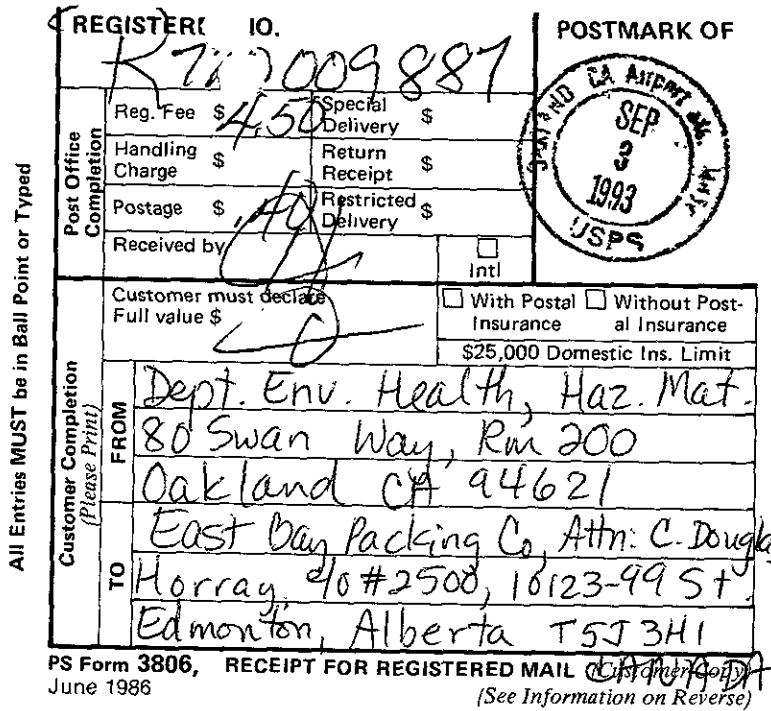 REGISTERE NO.
POSTMARK OF
009887
All Entries MUST be in Ball Point or Typed
Post Office Completion
Reg. Fee $ 4.50
Special Delivery $
Handling Charge $
Return Receipt $
Postage $ .40
Restricted Delivery $
Received by
Intl
CA Airport
SEP
3
1993
USPS
Customer Completion
(Please Print)
Customer must declare
Full value $ 0
With Postal Insurance
Without Postal Insurance
$25,000 Domestic Ins. Limit
FROM
Dept. Env. Health, Haz. Mat.
80 Swan Way, Rm 200
Oakland CA 94621
TO
East Bay Packing Co, Attn: C. Dougla
Horray c/o #2500, 10123-99 St.
Edmonton, Alberta T5J 3H1
CANADA
PS Form 3806, RECEIPT FOR REGISTERED MAIL (Customer Copy)
June 1986
(See Information on Reverse)